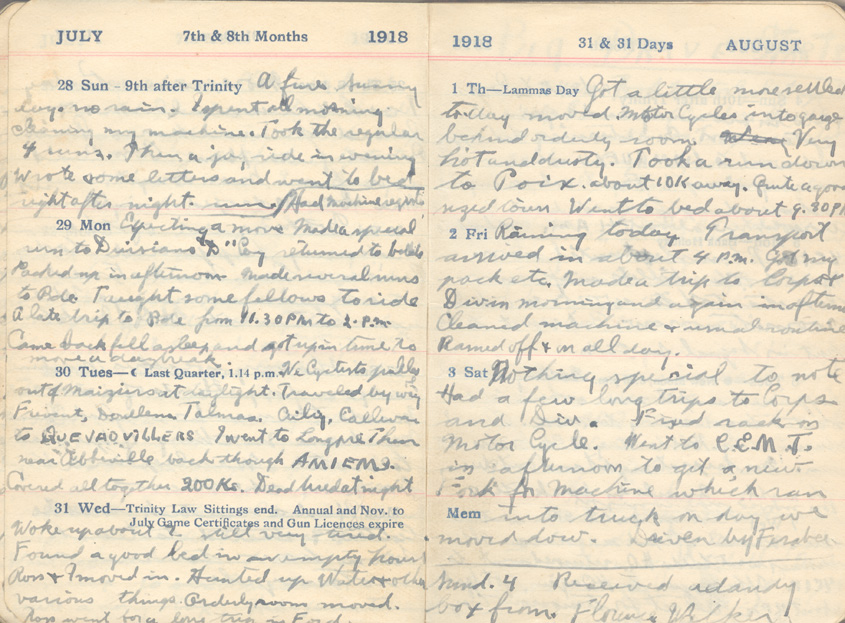 JULY 7th & 8th Months 1918
28 Sun - 9th after Trinity A fine sunny
day. no rain. Spent all morning
cleaning my machine. Took the regular
4 runs. Then a joy ride in evening
Wrote some letters and went to bed
right after night run. Had machine
29 Mon Expecting a move Made a special
run to Divisions "D" Coy returned to
Packed up in afternoon made several runs
to Bde. Taught some fellows to ride
A late trip to Bde from 11.30 PM to 2. P.m.
Came back fell asleep and got up in time to
move a daybreak.
30 Tues—☾ Last Quarter, 1.14 p.m. We Cyclists pulled
out of at daylight. Traveled by way
Frivent, Doullens Talmas.
to QUEVAUVILLERS I went to Longpre Then
near Abbeville back though AMIENS.
Covered all together 200 Ks. Dead tired at night
31 Wed—Trinity Law Sittings end. Annual and Nov. to
July Game Certificates and Gun Licences expire
Woke up about 7 still very tired.
Found a good bed in an empty house
Ross & I moved in. Hunted up Water & other
various things. Orderly room moved.
Ross went for a long trip in Ford.
1918 31 & 31 Days AUGUST
1 Th—Lammas Day Got a little more settled
today moved Motor Cycles into
behind orderly room. Very
hot and dusty. Took a run down
to Poix. about 10K away. Quite a good
sized town Went to bed about 9.30 PM
2 Fri Raining today Transport
arrived in about 4 P.M. Got my
pack etc. Made a trip to Corps &
Div in morning and again in aftern
Cleaned machine & usual routine
Rained off & on all day.
3 Sat Nothing special to note
Had a few long trips to Corps
and Div. Fixed rack on
Motor Cycle. Went to
in afternoon to get a new
Fork for Machine which ran
Mem into truck on day we
moved dow. Driven by
Sund. 4 Received a dandy
box from Flour